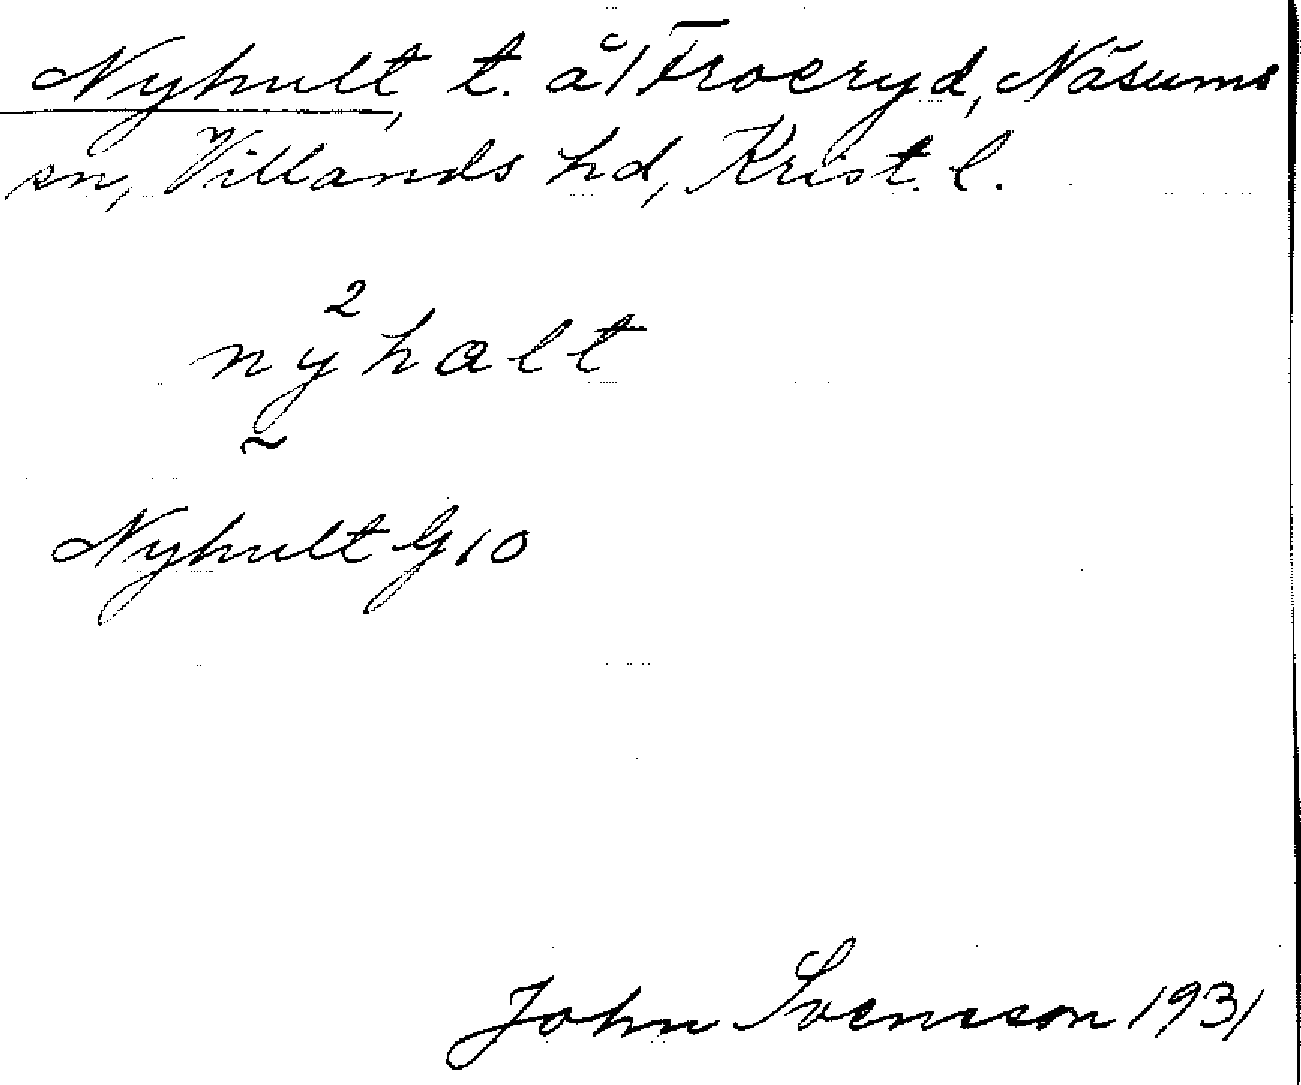 Nyhult, t. å/ Froeryd, Näsums
sn, Villands hd, Krist. l.
2
nyhalt
~
Nyhult G 10
John Svensson 1931